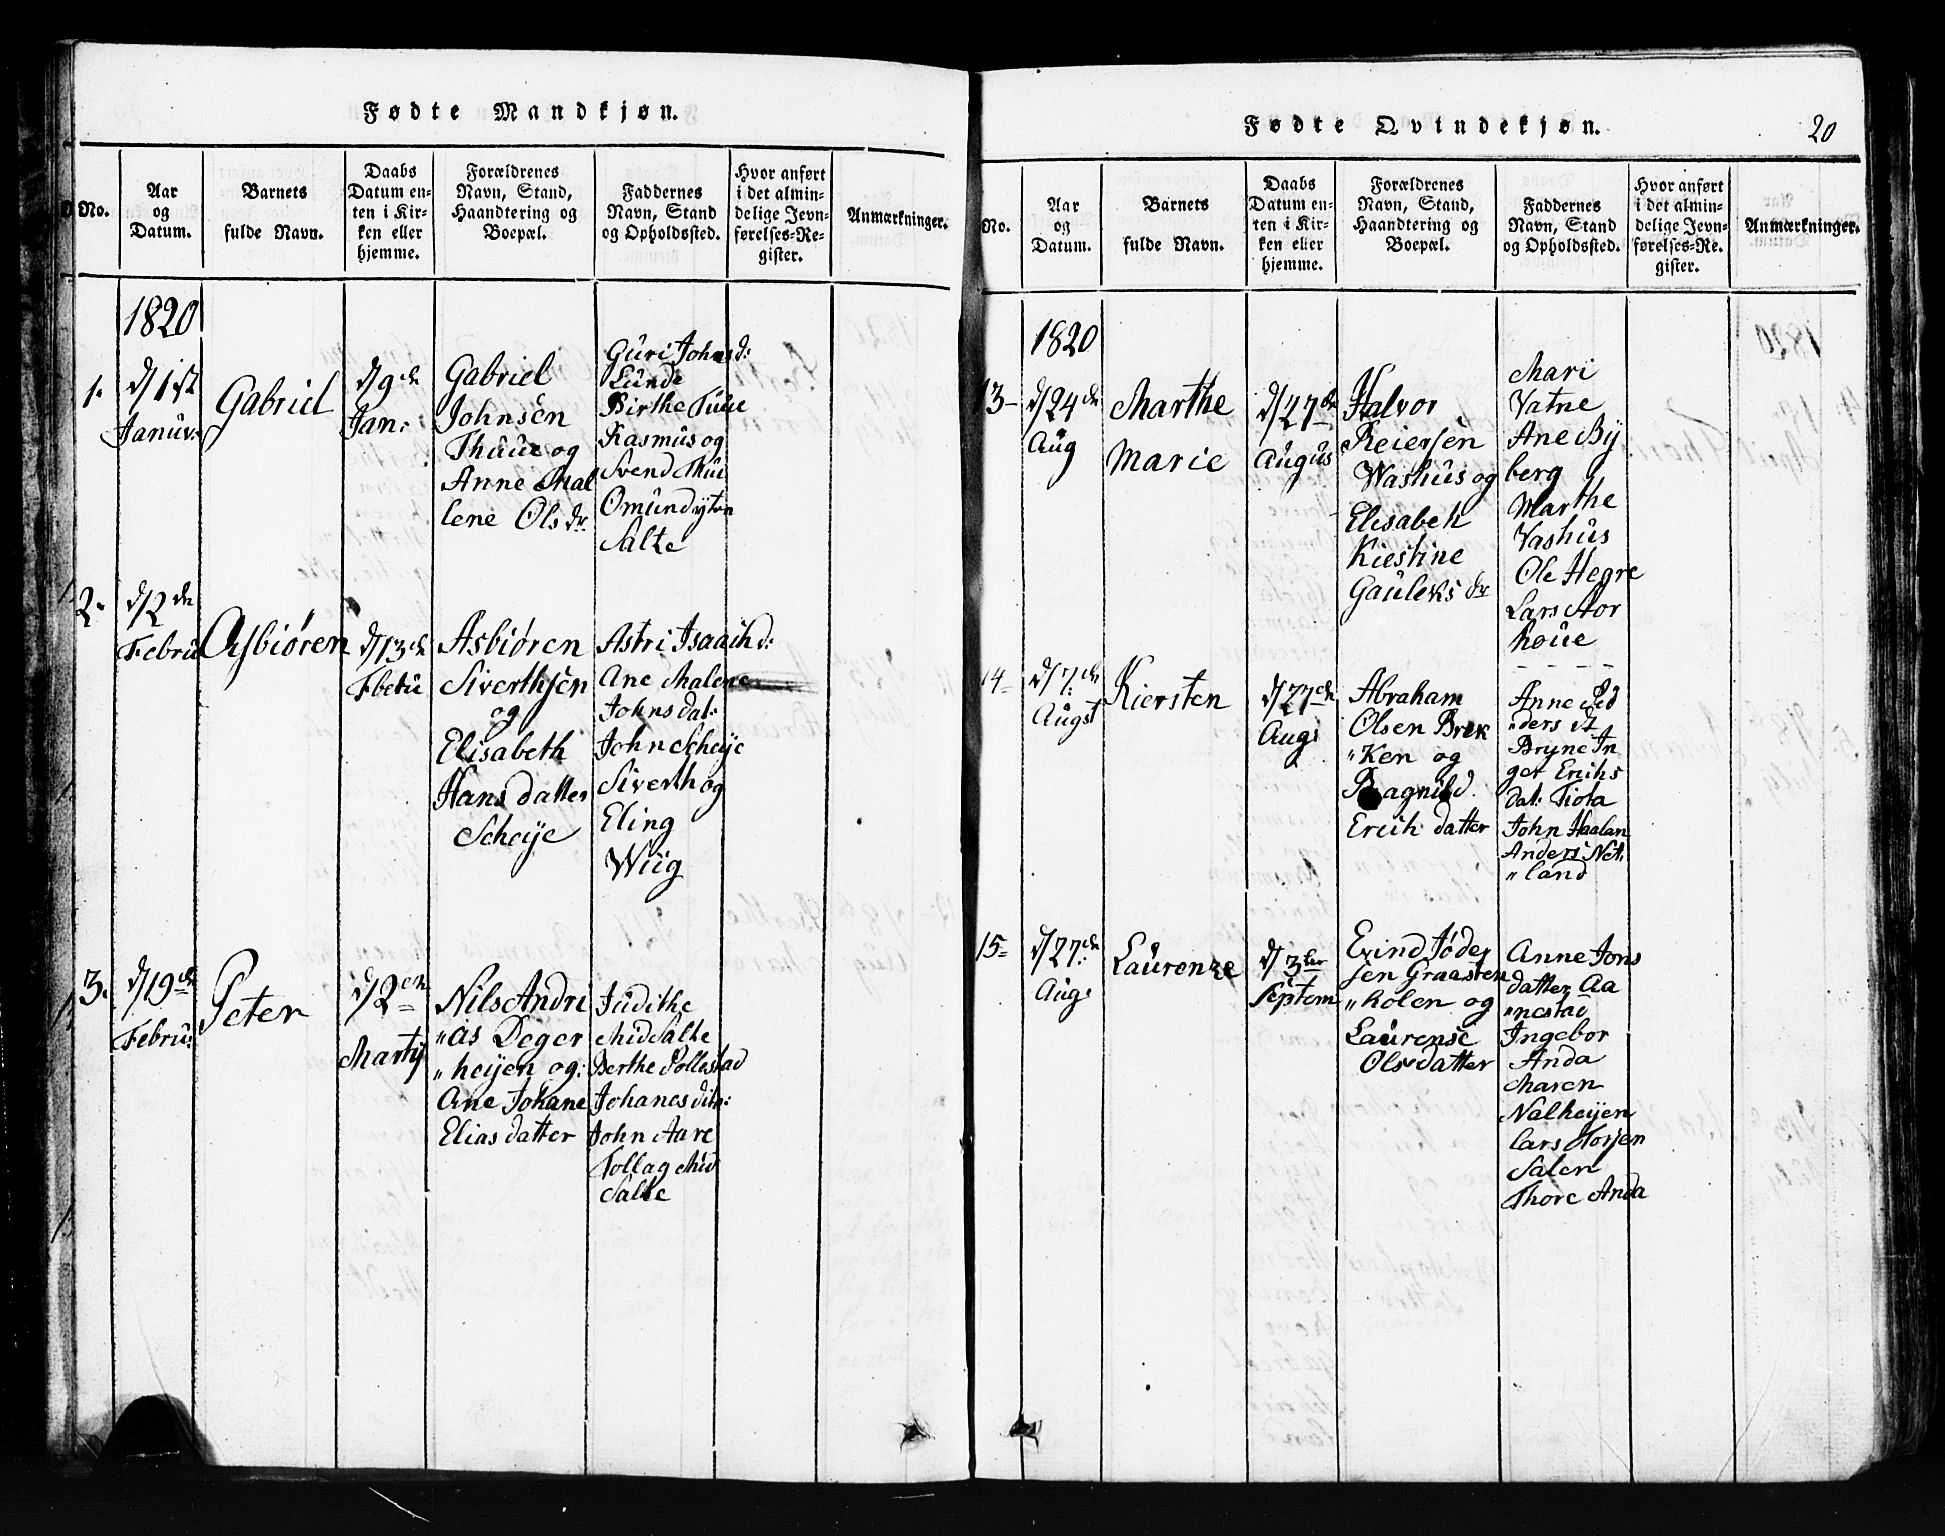 Fødte Mandkjøn.
No.
Aar
og
Datum.
Barnets
fulde Navn.
Daabs
Datum en-
ten i Kir-
ken eller
hjemme.
Forældrenes
Navn, Stand,
Haandtering og
Boepæl.
Faddernes
Navn, Stand
og Opholdssted.
Hvor anført
i det almin-
delige Jevn-
førelses-Re-
gister.
Anmærkninger.
1820
1.
d/1st
Januv:
Gabriel
d/9de
Jan:
Gabriel
Johnsen
Thuue og
Anne Mal
lene Olsdr
Guri Johnsd:
Lunde
Birthe Tuue
Rasmus og
Svend Thuu
Omund ytre
Salte
2.
d/2den
Febru
Asbiøren
d/13de
Fbetu
Asbiøren
Siverthsen
og
Elisabeth
Hans datter
Scheije
Astri Isaachd:
Ane Malene
Johnsdat:
John Scheije
Siverth og
Eling
Wiig
3.
d/19de
Febru:
Peter
d/2en
Martij
Nils Andri
"as Deger
"heijen og:
Ane Johane
Elias datter
Judithe
Mid Salte
Berthe Follestad
Johanes ditr:
John Aare
Tollag Mid
Salte
Fødte Qvindekjøn.
20
No.
Aar
og
Datum.
Barnets
fulde Navn.
Daabs
Datum en-
ten i Kir-
ken eller
hjemme.
Forældrenes
Navn, Stand,
Haandtering og
Boepæl.
Faddernes
Navn, Stand
og Opholdssted.
Hvor anført
i det almin-
delige Jevn-
førelses-Re-
gister.
Anmærkninger.
1820
13
d/24de
Aug
Marthe
Marie
d/27de
Augus
Halvor
Reiersen
Washus og
Elisabeh
Kiestine
Gauleks dr
Mari
Vatne
Ane By
berg
Marthe
Vashus
Ole Hegre
Lars Aor
houe
14
d/7de
Augst
Kiersten
d/27de
Aug:
Abraham
Olsen Brek
"Ken og
Ragnild
Erich datter
Anne Ped
"ders dt
Bryne In
ger Erichs
dat: Tiota
John Haalan
Anders Net:
"land
15
d/27de
Aug:
Laurenze
d/3ber
Septem
Erind Jøder
sen Graasten
"holen og
Laurense
Olsdatter
Anne Jons
datter Aa
"nestad
Ingebor
Anda
Maren
Nalheijen
Lars Horsen
Salen
Thore Anda